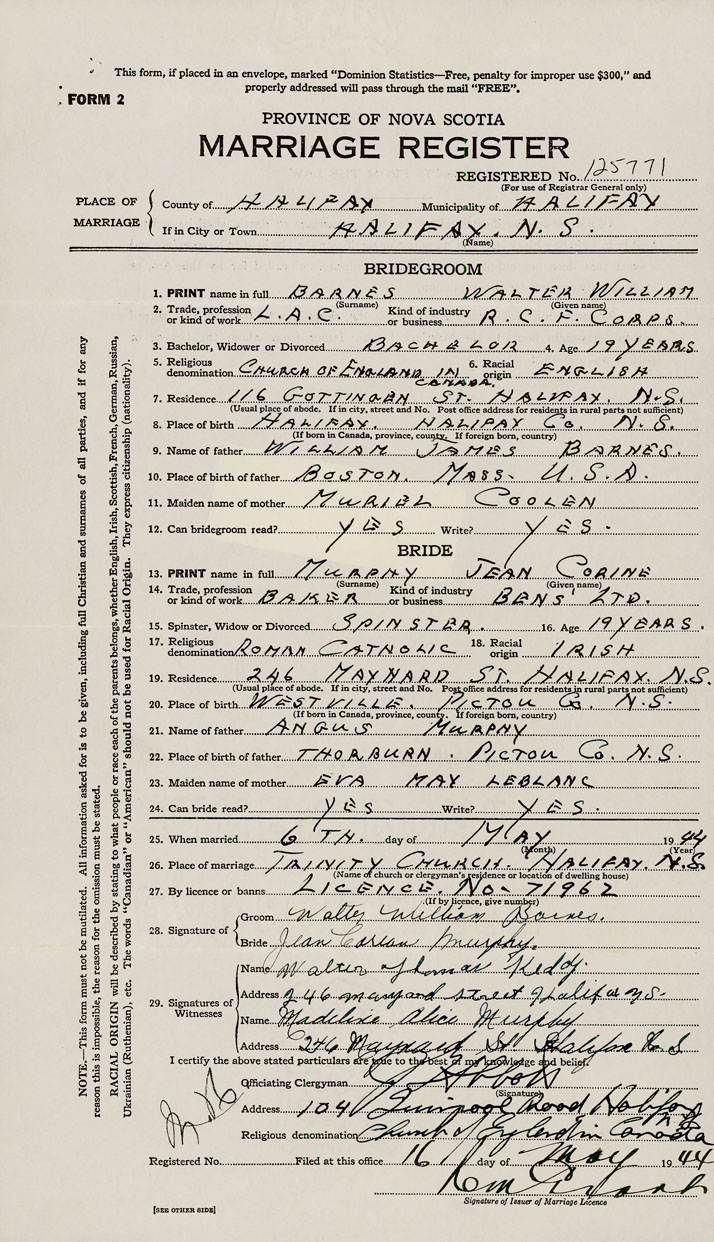 This form, if placed in an envelope, marked “Dominion Statistics—Free, penalty for improper use $300,” and
properly addressed will pass through the mail “FREE”.
FORM 2
PROVINCE OF NOVA SCOTIA
MARRIAGE REGISTER
REGISTERED No. 125771
(For use of Registrar General only)
PLACE OF MARRIAGE
County of HALIFAX Municipality of HALIFAX
If in City or Town HALIFAX. N. S.
(Name)
BRIDEGROOM
1. PRINT name in full BARNES WALTER WILLIAM
(Surname) (Given name)
2. Trade, profession or kind of work L.A.C. Kind of industry or business R. C. F. CORPS.
3. Bachelor, Widower or Divorced BACHELOR 4. Age 19 YEARS
5. Religious denomination CHURCH OF ENGLAND IN CANADA. 6. Racial origin ENGLISH
7. Residence 116 GOTTINGEN ST. HALIFAX. N.S.
(Usual place of abode. If in city, street and No. Post office address for residents in rural parts not sufficient)
8. Place of birth HALIFAX. HALIFAX CO. N. S.
(If born in Canada, province, county. If foreign born, country)
9. Name of father WILLIAM JAMES BARNES.
10. Place of birth of father BOSTON. MASS. U.S.A.
11. Maiden name of mother MURIEL COOLEN
12. Can bridegroom read? YES Write? YES.
BRIDE
13. PRINT name in full MURPHY JEAN CORINE
(Surname) (Given name)
14. Trade, profession or kind of work BAKER Kind of industry or business BENS' LTD.
15. Spinster, Widow or Divorced SPINSTER. 16. Age 19 YEARS.
17. Religious denomination ROMAN CATHOLIC 18. Racial origin IRISH
19. Residence 246 MAYNARD ST. HALIFAX. N.S.
(Usual place of abode. If in city, street and No. Post office address for residents in rural parts not sufficient)
20. Place of birth WESTVILLE. PICTOU CO. N.S.
(If born in Canada, province, county. If foreign born, country)
21. Name of father ANGUS MURPHY
22. Place of birth of father THORBURN. PICTOU CO. N.S.
23. Maiden name of mother EVA MAY LEBLANC
24. Can bride read? YES Write? YES.
25. When married 6 TH. day of MAY 1944
(Month) (Year)
26. Place of marriage TRINITY CHURCH. HALIFAX. N.S.
(Name of church or clergyman's residence or location of dwelling house)
27. By licence or banns LICENCE. NO- 71962
(If by licence, give number)
28. Signature of
Groom Walter William Barnes.
Bride Jean Murphy.
29. Signatures of Witnesses
Name Walter Thomas
Address 246 maynard street Halifax N.S.
Name Madeline Alice Murphy
Address 246 Maynard St Halifax N. S
I certify the above stated particulars are true to the best of my knowledge and belief.
Officiating Clergyman
(Signature)
Address 104 Liverpool Road Halifax
Religious denomination Church of England in Canada
Registered No. Filed at this office 16 day of May 1944
Signature of Issuer of Marriage Licence
[SEE OTHER SIDE]
NOTE.—This form must not be mutilated. All information asked for is to be given, including full Christian and surnames of all parties, and if for any
reason this is impossible, the reason for the omission must be stated.
RACIAL ORIGIN will be described by stating to what people or race each of the parents belongs, whether English, Irish, Scottish, French, German, Russian,
Ukrainian (Ruthenian), etc. The words “Canadian” or “American” should not be used for Racial Origin. They express citizenship (nationality).